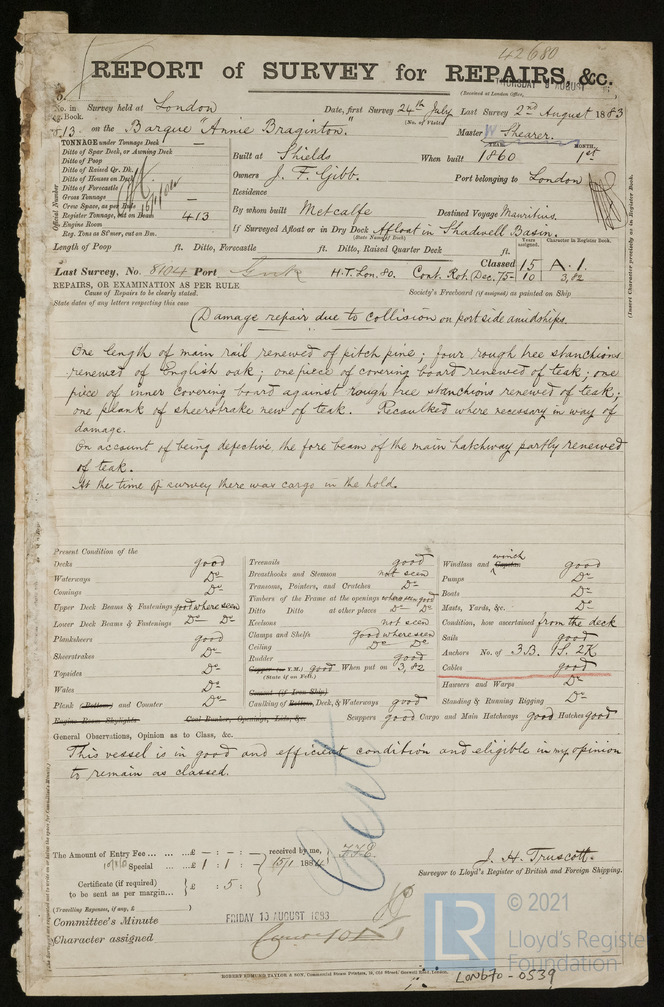 42680
REPORT of SURVEY for REPAIRS, &c.
THURSDAY 9 AUGUST
(Received at London Office,
No. in Survey held at London Date, first Survey 24th July Last Survey 2nd August 1883
Reg. Book. (No. of Visits)
813 on the Barque "Annie Braginton." Master W Shearer.
TONNAGE under Tonnage Deck —
Ditto of Spar Deck, or Awning Deck
Ditto of Poop
Ditto of Raised Qr. Dk.
Ditto of Houses on Deck
Ditto of Forecastle
Gross Tonnage —
Crew Space, as per Rule
Register Tonnage, cut on Beam 413
Engine Room
Reg. Tons as St'mer, cut on Bm.
Official Number
YEAR. MONTH.
Built at Shields When built 1860 1st
Owners J. F. Gibb. Port belonging to London
Residence
By whom built Metcalfe Destined Voyage Mauritius.
If Surveyed Afloat or in Dry Dock Afloat in Shadwell Basin.
(State Name of Dock)
Length of Poop ft. Ditto, Forecastle ft. Ditto, Raised Quarter Deck ft.
Years assigned. Character in Register Book.
Last Survey, No. 8104 Port H.T. Lon. 80. Cont. Rot. Dec. 75- Classed 15 A.1.
10 3,82
(Insert Character precisely as in Register Book.
REPAIRS, OR EXAMINATION AS PER RULE
Cause of Repairs to be clearly stated. Society's Freeboard (if assigned) as painted on Ship
State dates of any letters respecting this case
(Damage repair due to collision on port side amidships.
One length of main rail renewed of pitch pine; four rough tree stanchions
renewed of English oak; one piece of covering board renewed of teak; one
piece of inner covering board against rough tree stanchions renewed of teak;
one plank of sheerstrake new of teak. Recaulked where necessary in way of
damage.
On account of being defective the fore beam of the main hatchway partly renewed
of teak.
At the time of survey there was cargo in the hold.
Present Condition of the
Decks good
Waterways Do
Comings Do
Upper Deck Beams & Fastenings good where seen
Lower Deck Beams & Fastenings Do Do
Planksheers good
Sheerstrakes Do
Topsides Do
Wales Do
Plank (Bottom) and Counter Do
Engine Room Skylights Coal Bunker, Openings, Lids, &c.
Treenails good
Breasthooks and Stemson not seen
Transoms, Pointers, and Crutches Do
Timbers of the Frame at the openings where seen good
Ditto Ditto at other places Do Do
Keelsons not seen
Clamps and Shelfs Good where seen
Ceiling Do Do
Rudder good
Copper (or Y.M.) good When put on 3,82
(State if on Felt.)
Cement (if Iron Ship)
Caulking of Bottom, Deck, & Waterways good
Windlass and Capstan winch good
Pumps Do
Boats Do
Masts, Yards, &c. Do
Condition, how ascertained from the deck
Sails good
Anchors No. of 3B. 1S. 2K
Cables good
Hawsers and Warps Do
Standing & Running Rigging Do
Scuppers good Cargo and Main Hatchways good Hatches good
General Observations, Opinion as to Class, &c.
This vessel is in good and efficient condition and eligible in my opinion
to remain as classed.
Cert
The Amount of Entry Fee ... £ - : - : received by me,
Special ... £ 1 : 1 : 188
Certificate (if required) to be sent as per margin... £ : 5 :
(Travelling Expenses, if any, £ )
J. H. Truscott.
Surveyor to Lloyd's Register of British and Foreign Shipping.
Committee's Minute FRIDAY 10 AUGUST 1883
Character assigned
ROBERT EDMUND TAYLOR & SON, Commercial Steam Printers, 19, Old Street, Goswell Road, London.
LR
© 2021
Lloyd's Register
Foundation
LON670-0539